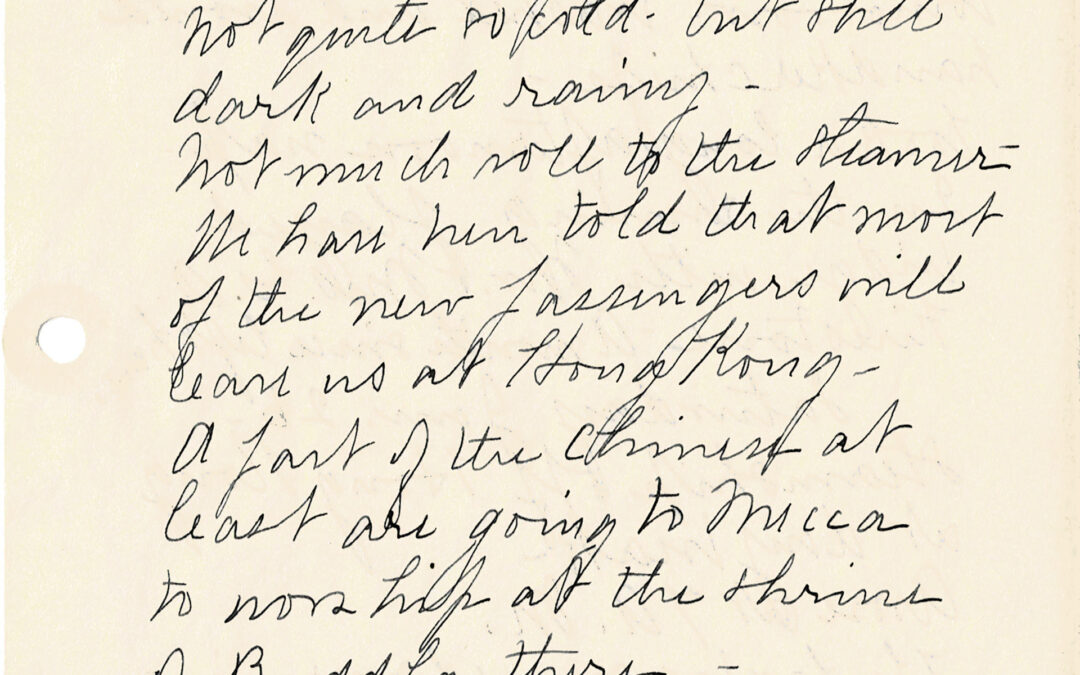 not quite so cold - but still
dark and rainy -
Not much roll to the steamer -
We have been told that most
of the new passengers will
leave us at Hong Kong -
A part of the Chinese at
least are going to Mecca
to worship at the shrine
of Buddha there -